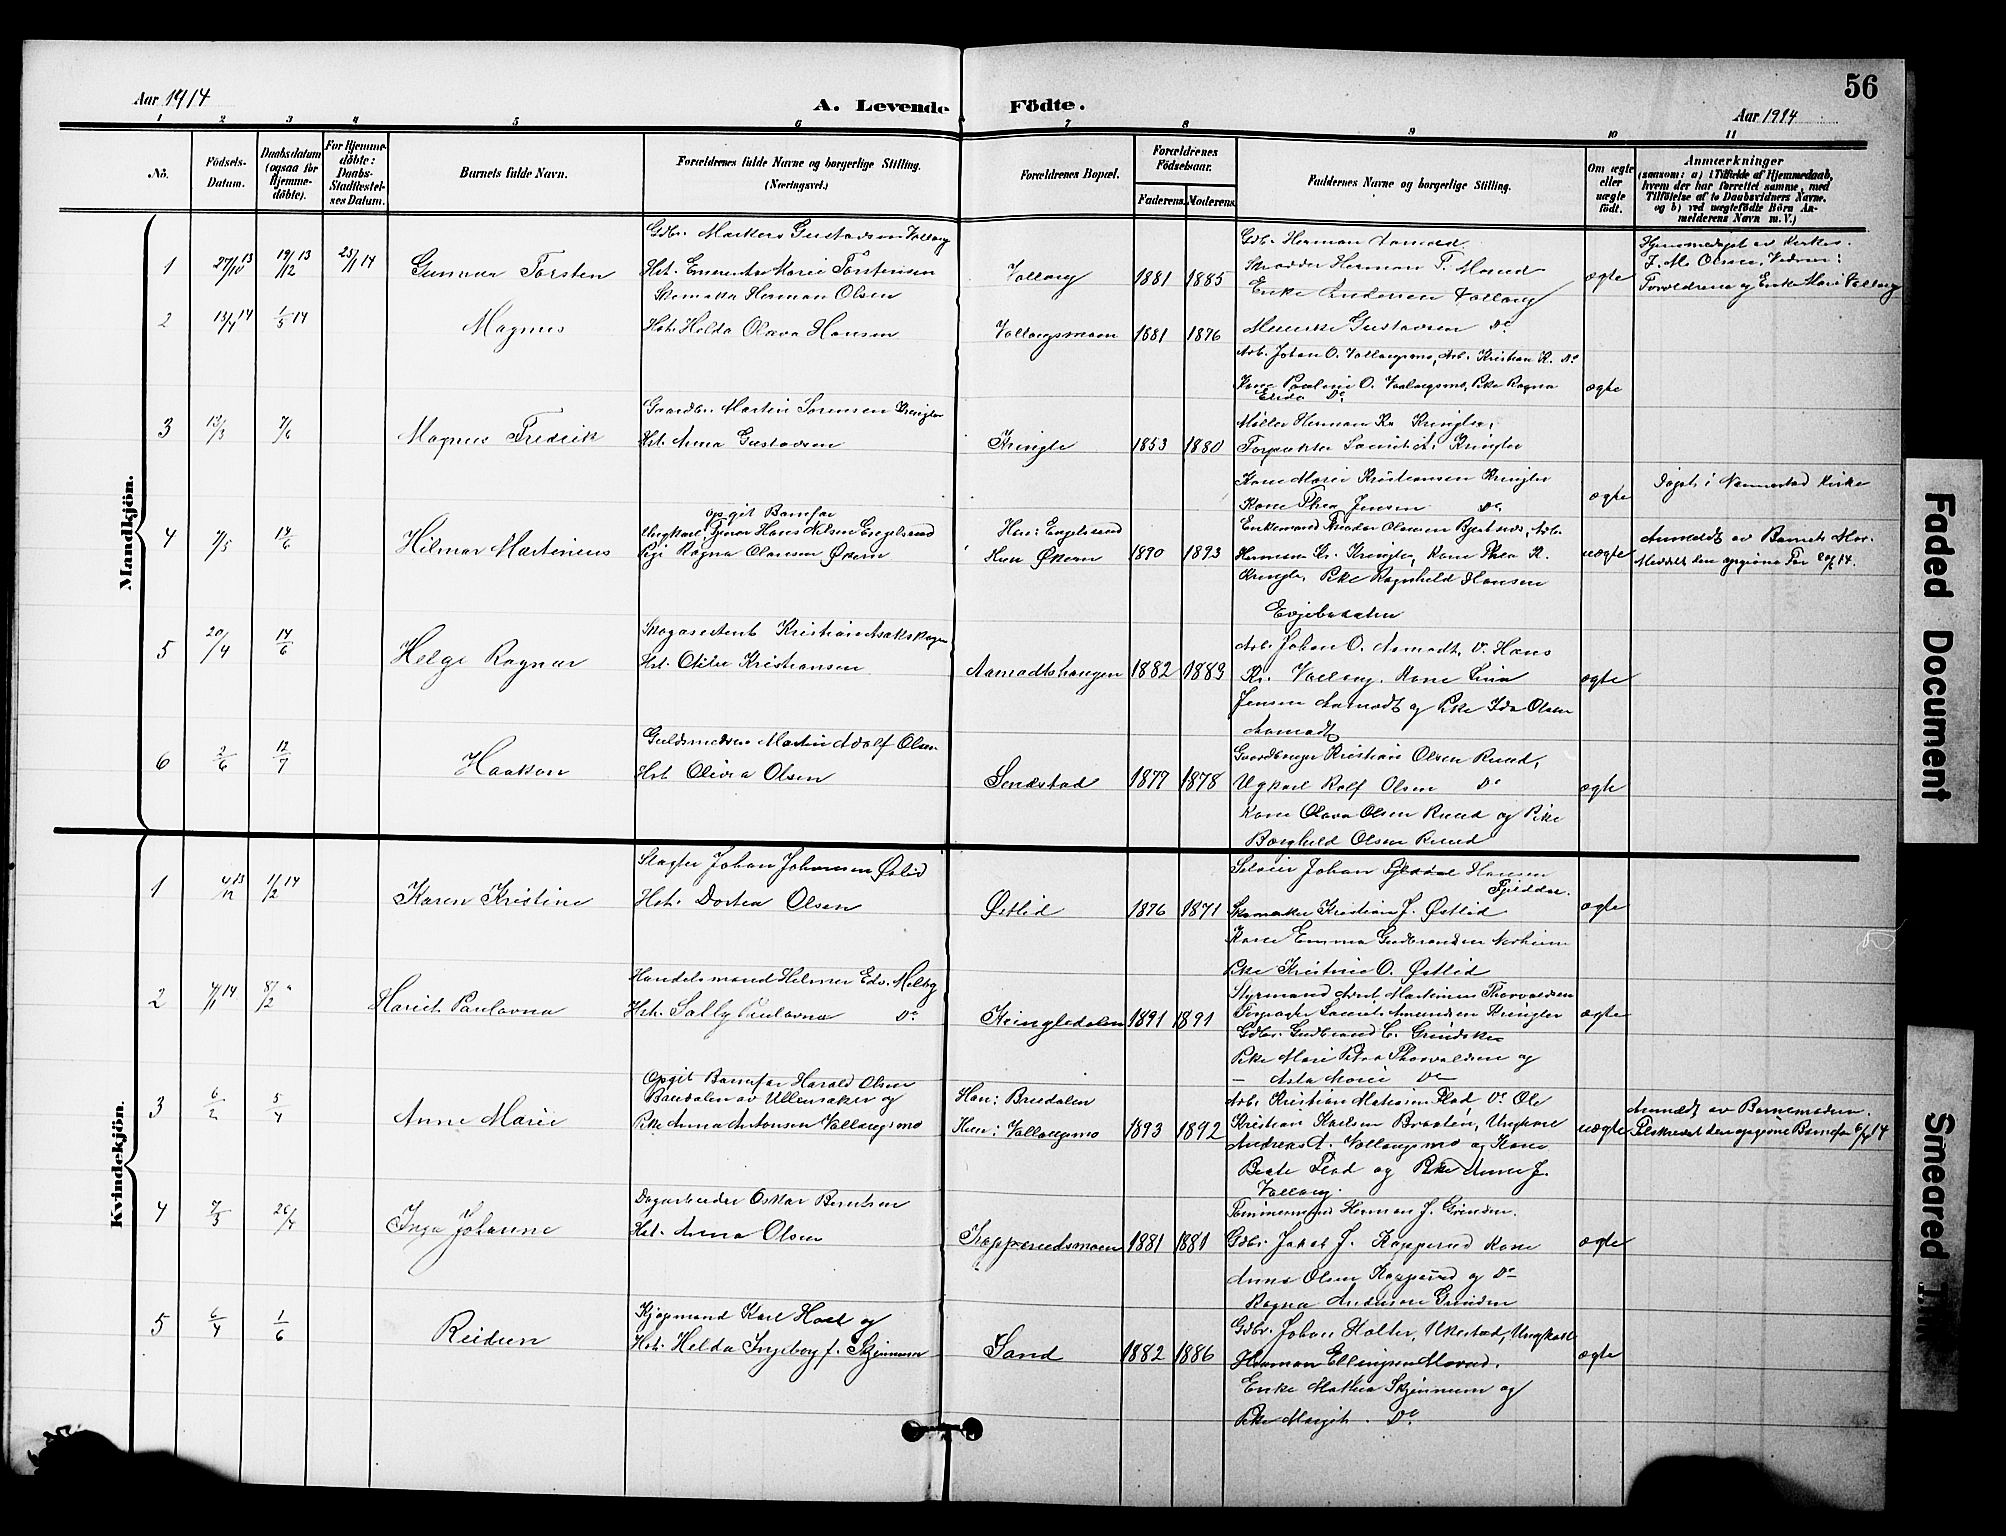 56
Aar 1914
A. Levende Födte.
Aar 1914
1 2 3 4 5 6 7 8 9 10 11
No.
Födsels-Datum.
Daabsdatum (ogsaa for Hjemme-döbte).
For Hjemme-döbte: Daabs-Stadfæstel-ses Datum.
Barnets fulde Navn.
Forældrenes fulde Navne og borgerlige Stilling. (Næringsvei.)
Forældrenes Bopæl.
Forældrenes Födselsaar.
Faderens. Moderens.
Faddernes Navne og borgerlige Stilling.
Om ægte eller uægte födt.
Anmærkninger
(saasom: a) i Tilfælde af Hjemmedaab, hvem der har forrettet samme, med Tilföielse af to Daabsvidners Navne, og b) ved uægtefödte Börn An-melderens Navn m. V.)
Mandkjön.
1 27/10 13 19/12 13 25/1 14 Gunnar Torsten
Gdbr. Markero Gustavsen Vallaug
Hst. Emerentse Marie Torstensen
Vallaug 1881 1885
Gdb. Herman Aamodt
Skrædder Herman T. Morud
Enke Andersen Vallaug
Gustavsen Do
ægte
Hjemmedøpt av Kirkes.
J. M. Olsen, Vidner:
Forældrene og Enke Marie Vallaug
2 13/4 14 1/5 14 Magnus
Skomaker Herman Olsen
Hst. Holda Olava Hansen
Vallaugsmoen 1881 1876
Arb. Johan O. Vallaugsmo, Arb. Kristian K. Do
Kone Pauline O. Vallaugsmo, Pike Ragna
Do
ægte
3 13/3 7/6 Magnus Fredrik
Gaardbr. Martin Sørensen Kringler
Hst. Anna Gustavsen
Kringle 1853 1880
Møller Herman Kr. Kringler,
Forpakter Laurits A. Kringler
Kone Marie Kristiansen Kringler
Kone Thea Jensen Do
ægte
Døpt i Nannestad Kirke
4 7/5 14/6 Hilmar Martinius
Opgit Barnefar
Ungkarl Hans Nilsen Engelsrud
Pige Ragna Olausen Økern
Han: Engelsrud
Hun Økern
1890 1893
Enkemand Teodor Olausen Arb.
Herman Kr. Kringler, Kone Thea K.
Kringler, Pike Ragnhild Hansen
uægte
Anmeldt av Barnets Mor.
Meddelt den opgivne Far 20/6 14.
5 20/4 14/6 Helge Ragnar
Kristian Isakskogen
Hst. Otilie Kristiansen
Aamodtshaugen 1882 1889
Arb. Johan O. Aamodt, Do Hans
Kr. Vallaug, Kone Lina
Jensen Aamodt og Pike Ida Olsen
Aamodt
ægte
6 2/6 12/7 Haakon
Guldsmedsv. Martin Adolf Olsen
Hst. Olivia Olsen
Sundstad 1877 1878
Gaardbruger Kristian Olsen Ruud,
Ugkarl Rolf Olsen Do
Kone Olava Olsen Ruud og Pike
Borghild Olsen Ruud
ægte
Kvindekjön.
1 4/12 13 1/2 14 Karen Kristine
Slagter Johan Johansen Østlid
Hst. Dortea Olsen
Østlid 1876 1871
Johan Hansen
Fjelddal.
Skomaker Kristian J. Østlid
Kone Emma Gudbrandsen Norheim
Pike Kristine O. Østlid
ægte
2 7/1 14 8/2 " Harriet Paulovna
Handelsmand Hilmer Edv. Melby
Hst. Sally Paulovna Do
Kringledalen 1891 1891
Styrmand Arnt Martinius Thorvaldsen
Forpagter Laurits Amundsen Kringler
Gdbr. Gudbrand C.
Pike Marie Petra Thorvaldsen og
— Asta Marie Do
ægte
3 6/2 5/4 Anne Marie
Opgit Barnefar Harald Olsen
Brudalen av Ullensaker og
Pike Anna Antonsen Vallaugsmo
Han: Brudalen
Hun: Vallaugsmo
1893 1892
Arb. Kristian Matisen Flod Do Ole
Kristian Karlsen Braaten, Ungkarl
Andreas A. Vallaugsmo og Kone
Beate Flod og Pike Anna J.
Vallaug.
uægte
Anmeldt av Barnemoderen.
Tilskrevet den opgivne Barnefar 6/4 14
4 7/3 26/4 Inga Johanne
Dagarbeider Oskar Berntsen
Hst. Anna Olsen
Kopperudsmoen 1881 1881
Tømmermand Herman J. Grinden.
Gdbr. Jakob J. Kopperud Kone
Anna Olsen Kopperud og Do
Ragna Andersen Grinden
ægte
5 6/4 1/6 Reidun
Kjøpmand Karl Hoel og
Hst. Helda Ingeborg f. Skjennum
Sand 1882 1886
Gdbr. Johan Holter, Ukestad, Ungkarl
Herman Ellingsen Morud.
Enke Mathea Skjennum og
Pike Margit Do
ægte
Faded Document
Smeared Ink